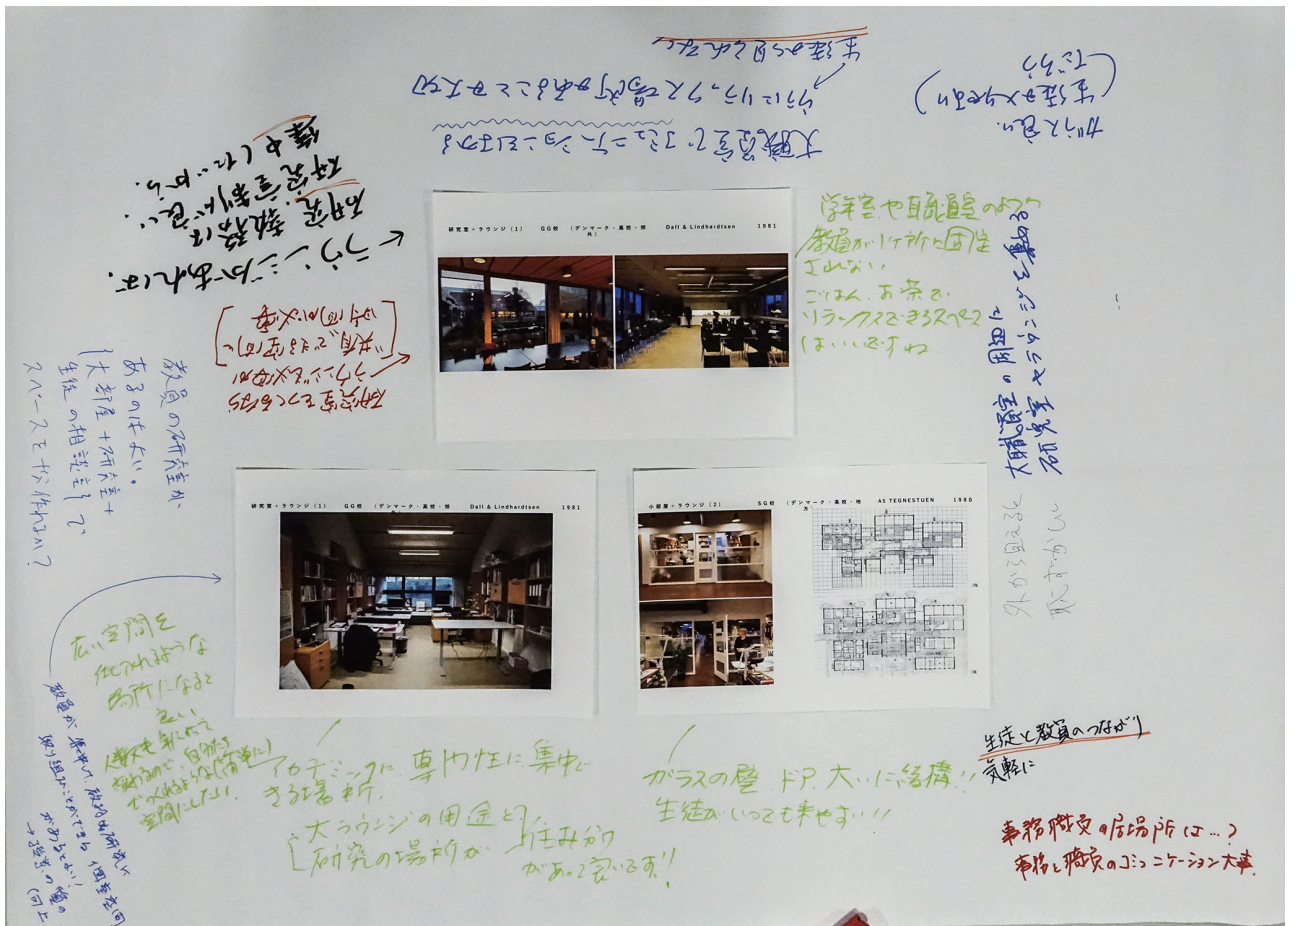 生徒から見られない
裏にリラックス場所があることが大切
大職員室でコミュニケーションをはかる
ガラス良い
(生徒が
だろう)
ラウンジがあれば、
教務は
研究室制が良い。
研究
集中したいから。
研究室をつくるなら
ラウンジも必要か
"共有"できる空間
時間が必要
研究室+ラウンジ(1) GG校 (デンマーク・高校・郊外) Dall & Lindhardtsen 1981
学年室や職員室のように
教員が1ヶ所に固定
されない
ごはん、お茶で
リラックスできるスペース
はいいですね
大職員室の周囲に
研究室やラウンジを
外から見えると
恥ずかしい
教員の研究室が、
あるのはよい。
大部屋+研究室+
生徒の相談
スペースを 作れるか?
研究室+ラウンジ(1) GG校 (デンマーク・高校・郊外) Dall & Lindhardtsen 1981
小部屋+ラウンジ(2) SG校 (デンマーク・高校・地方) AS TEGNESTUEN 1980
広い空間を
場所になると
良い
人数も年によって
変わるので、自分たち
でつくれるような(簡単に)
空間にしたい。
教員が集中して、教材研究に
取り組むことができる 個室空間
があるとよい!
アカデミックに、専門性に集中で
きる場所。
大ラウンジの用途と
研究の場所が
住み分け
があって良いです!!
ガラスの壁、ドア、大いに結構!!
生徒がいつでも来やすい!!
生徒と教員のつながり
気軽に
事務職員の居場所は…?
事務と職員のコミュニケーション大事。